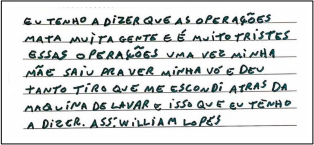 EU TENHO A DIZER QUE AS OPERAÇÕES
MATA MUITA GENTE E É MUITO TRISTES
ESSAS OPERAÇÕES UMA VEZ MINHA
MÃE SAIU PRA VER MINHA VÓ E DEU
TANTO TIRO QUE ME ESCONDI ATRAS DA
MAQUINA DE LAVAR E ISSO QUE EU TENHO
A DIZER. ASS: WILLIAM LOPES